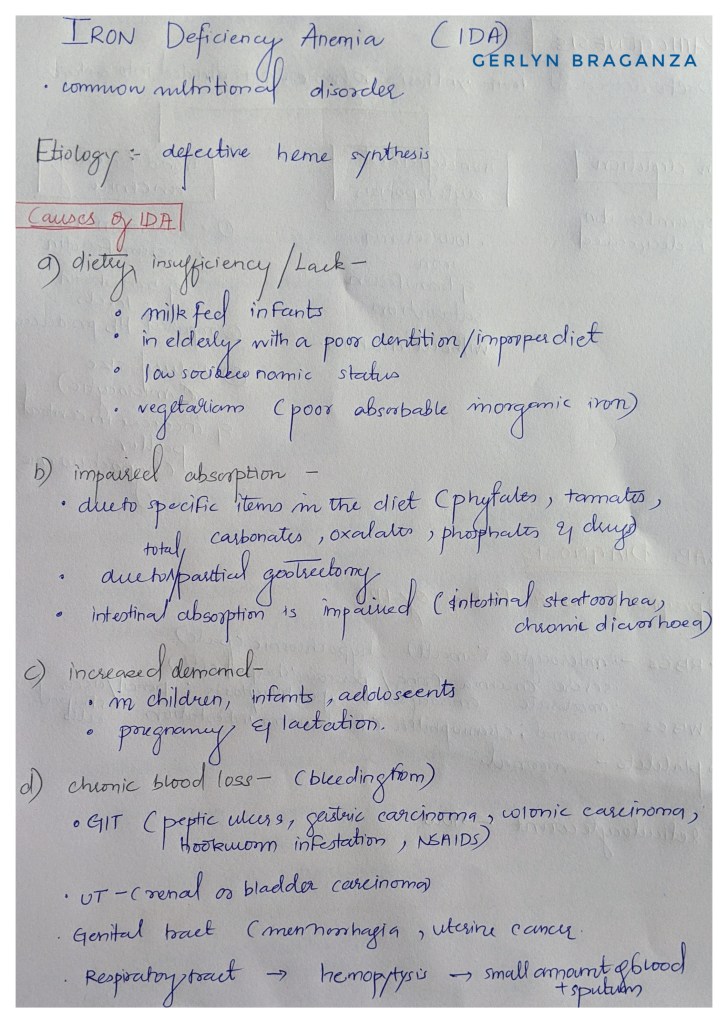 IRON Deficiency Anemia (IDA)
GERLYN BRAGANZA
• common nutritional disorder
Etiology :- defective heme synthesis
Causes of IDA
a) dietry insufficiency / Lack -
• milk fed infants
• in elderly with a poor dentition / impropper diet
• low socioeconomic status
• vegetarians (poor absorbable inorganic iron)
b) impaired absorption -
• due to specific items in the diet (phytates, tannates,
carbonates, oxalates, phosphates & drugs)
total,
• due to / partial gastrectomy
• intestinal absorption is impaired (intestinal steatoorrhea,
chronic diarrhoea)
c) increased demand -
• in children, infants, adoloscents
• pregnancy & lactation.
d) chronic blood loss - (bleeding from)
• GIT (peptic ulcers, gastric carcinoma, colonic carcinoma,
hookworm infestation, NSAIDS)
• UT - (renal or bladder carcinoma)
• Genital tract (menhorrhagia, uterine cancer.
• Respiratory tract → hemopytysis → small amount of blood
+ sputum